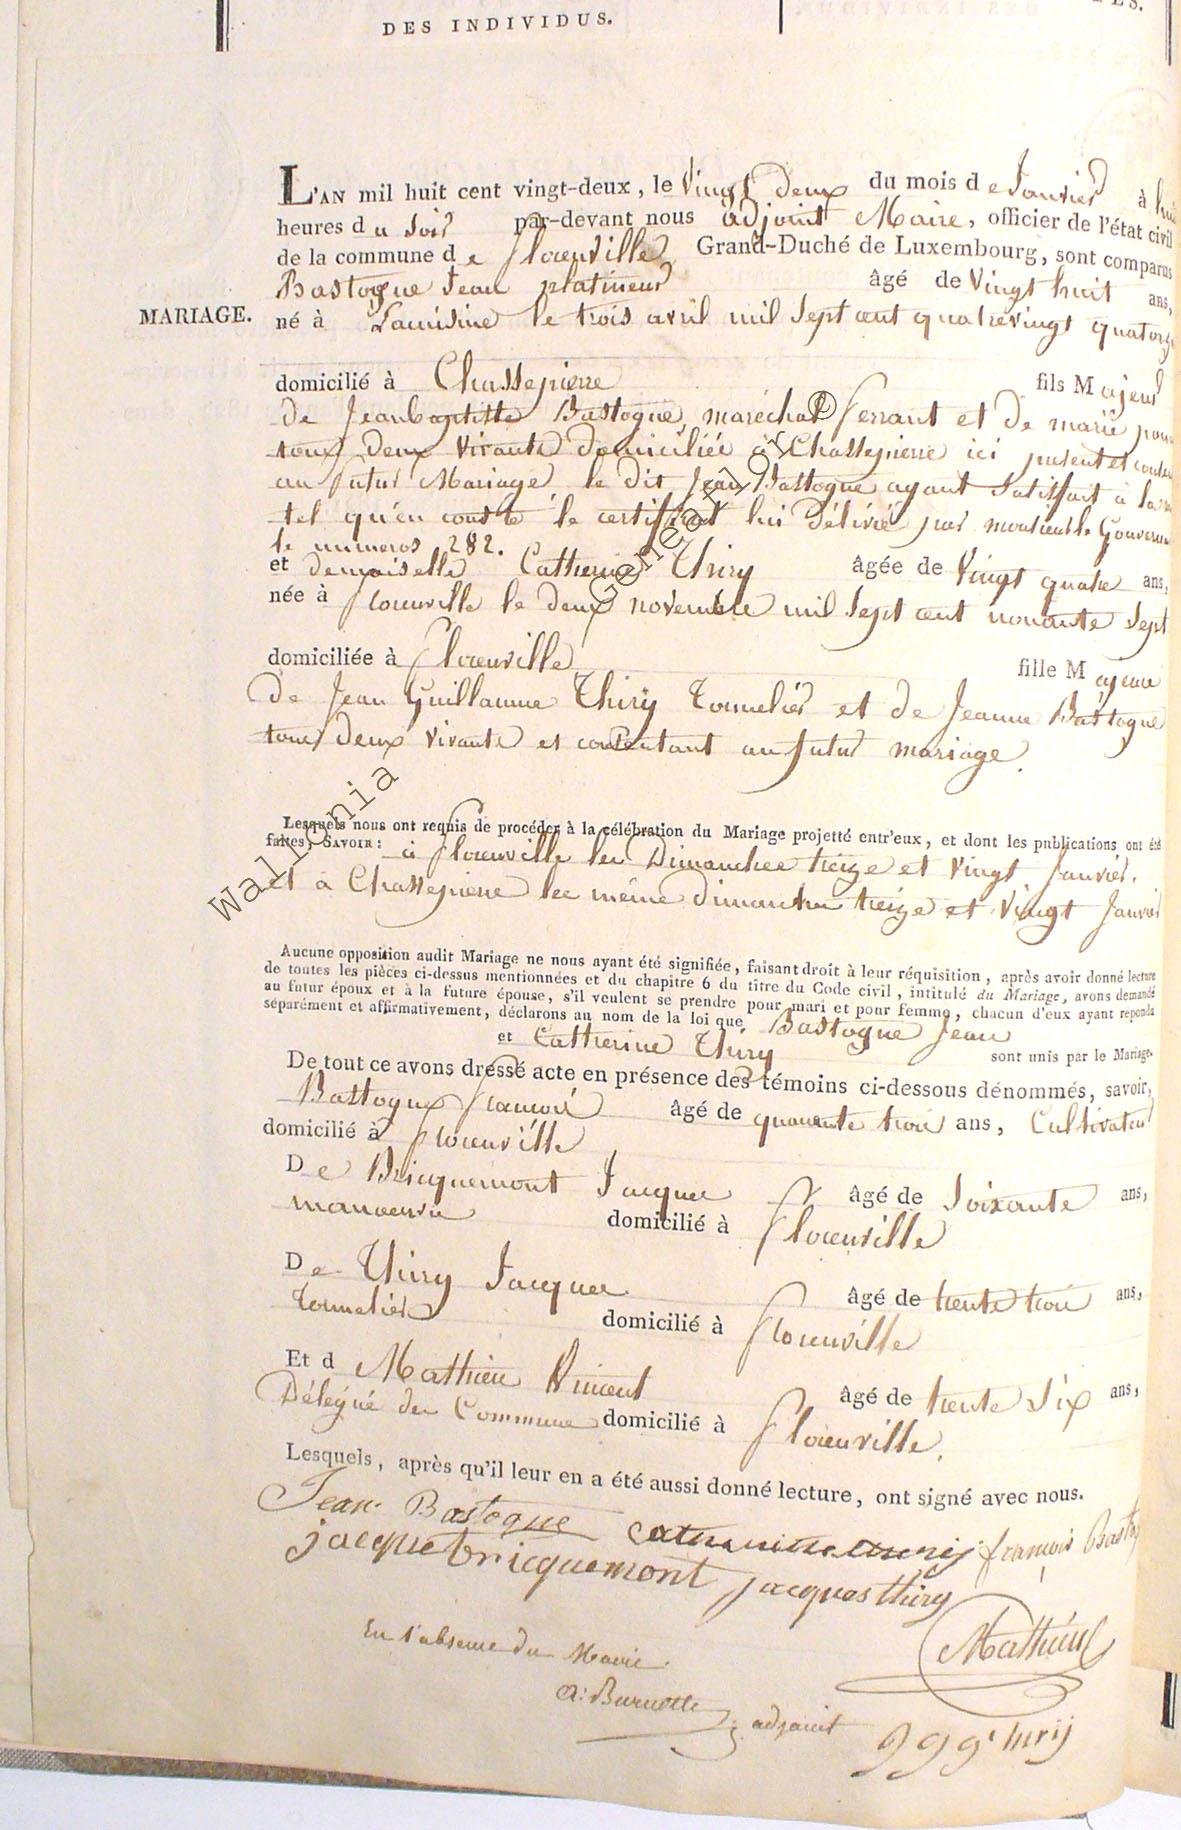 DES INDIVIDUS.
MARIAGE.
L'AN mil huit cent vingt-deux, le Vingt deux du mois de Janvier à huit
heures du Soir par-devant nous adjoint Maire, officier de l'état civil
de la commune de florenville Grand-Duché de Luxembourg, sont comparus
Bastogne Jean platineur âgé de Vingt huit ans,
né à Lamisine le trois avril mil Sept cent quatrevingt quatorze
domicilié à Chassepierre fils Majeur
de Jeanbaptiste Bastogne, maréchal ferrant et de marie
tous deux vivants domiciliée à Chassepierre ici présent et
au futur Mariage le dit Jean Bastogne ayant Satisfait à la
tel qu'en conste le certificat lui Délivré par monsieur le Gouverneur
le numeros 282.
et demoiselle Catherine Thiry âgée de Vingt quatre ans,
née à florenville le deux novembre mil Sept cent nonante Sept
domiciliée à florenville fille Majeure
De Jean Guillaume Thiry Tonnelier et de Jeanne Bastogne
tous deux vivants et consentant au futur mariage.
Lesquels nous ont requis de procéder à la célébration du Mariage projetté entr'eux, et dont les publications ont été
faites, SAVOIR: à florenville les Dimanches treize et vingt Janvier.
et à Chassepierre les même dimanches treize et vingt Janvier
Aucune opposition audit Mariage ne nous ayant été signifiée, faisant droit à leur réquisition, après avoir donné lecture
de toutes les pièces ci-dessus mentionnées et du chapitre 6 du titre du Code civil, intitulé du Mariage, avons demandé
au futur époux et à la future épouse, s'il veulent se prendre pour mari et pour femme, chacun d'eux ayant repondu
séparément et affirmativement, déclarons au nom de la loi que Bastogne Jean
et Catherine Thiry sont unis par le Mariage.
De tout ce avons dressé acte en présence des témoins ci-dessous dénommés, savoir,
Bastogne francois âgé de quarante trois ans, Cultivateur
domicilié à florenville
De Bricquemont Jacques âgé de Soixante ans,
manoeuvre domicilié à florenville
De Thiry Jacques âgé de trente trois ans,
Tonnelier domicilié à florenville
Et d Mathieu Vincent âgé de trente Six ans,
Délégué de Commune domicilié à florenville.
Lesquels, après qu'il leur en a été aussi donné lecture, ont signé avec nous.
Jean Bastogne françois Bastogne
jacque bricquemont jacques thiry
Mathieu
En l'absence du Maire
Burnotte adjoint
Wallonia Genealo ©